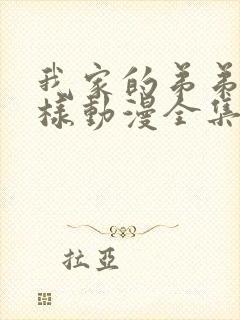 我家的弟弟
樣動漫全集
拉亞